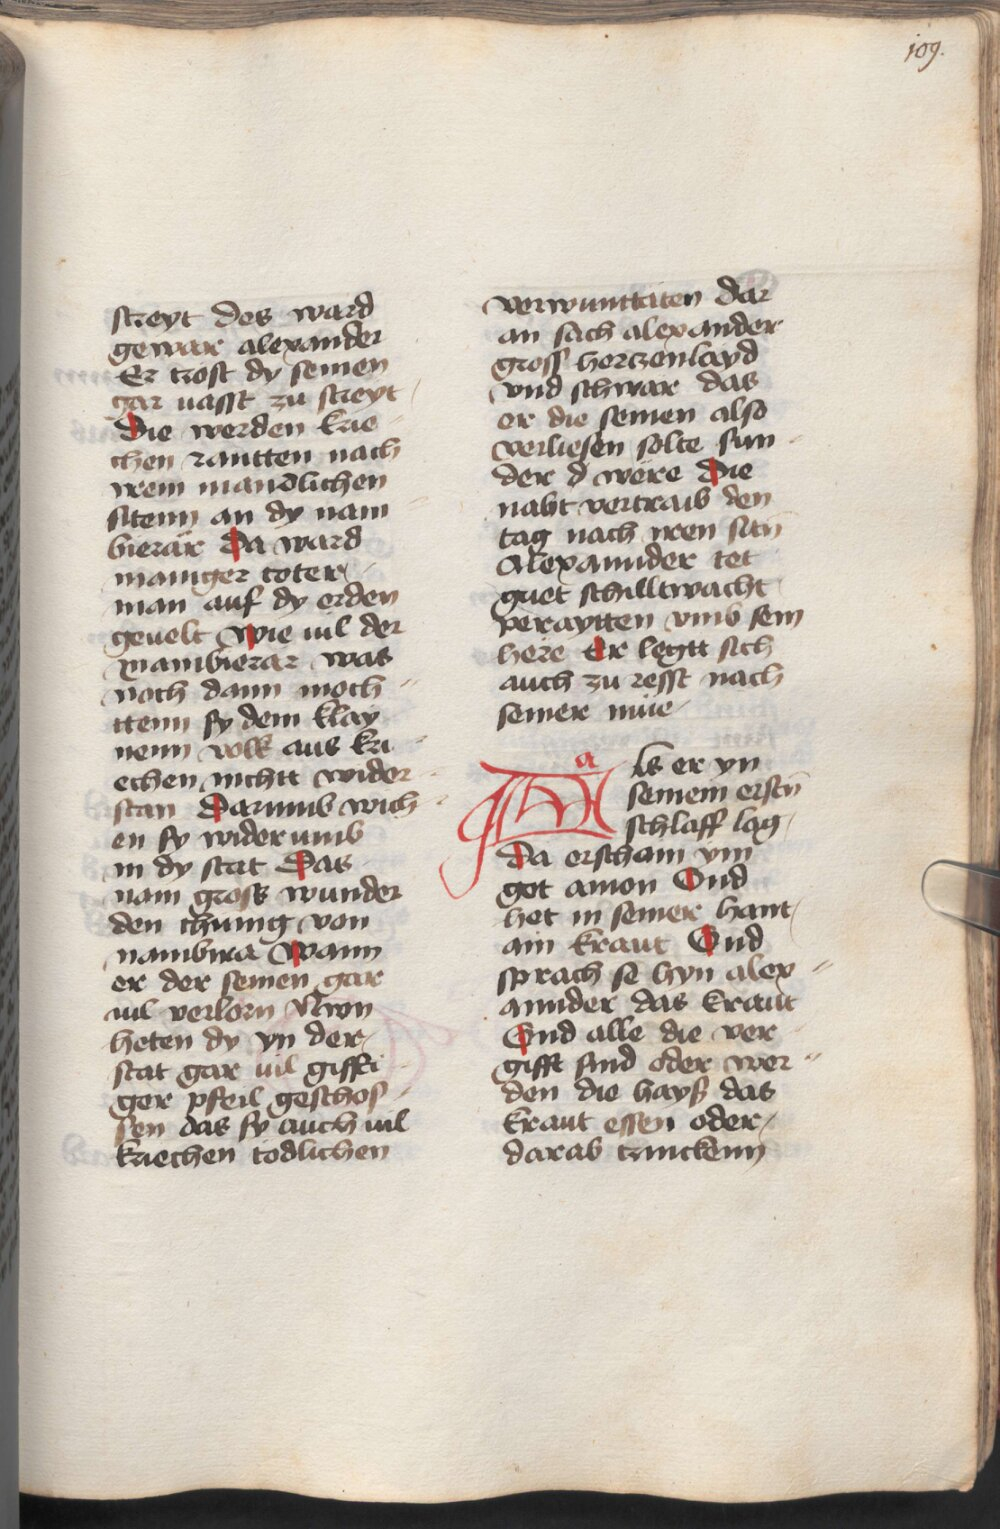 109.
streyt des ward
gewar alexander
Er trost dy seinen
gar uasst zu streyt
Die werden krie
chen rantten nach
irem mandlichen
sitenn an dy nam
bierär Da ward
maniger toter
man auf dy erden
geuelt Wie uil der
nambierar was
noch dann moch
ttenn sy dem klay
nenn volk aus kri
echen nichtt wider
stan Darumb wich
en sy widerumb
in dy stat Das
nam gross wunder
den chunig von
nambira Wann
er der seinen gar
uil verlorn Nwn
heten dy yn der
stat gar uil giffti
ger pfeil geschos
sen das sy auch uil
kriechen tödlichen
verwunttaten dar
an sach alexander
gross hertzenlayd
vnd schwar das
er die seinen also
verliesen solte sun
der d wëre Die
naht vertraib den
tag nach iren sitn
Alexannder tet
guet schilltwacht
peraytten vmb sein
here Er legtt sich
auch zu resst nach
seiner müe
Als er yn
seinem ersten
schlaff lag
Da erscham ym
got amon Vnd
het in seiner hant
ain kraut Vnd
sprach se hyn alex
annder das kraut
Vnd alle die ver
gifft sind oder wer
den die hayß das
kraut essen oder
darab trinckenn